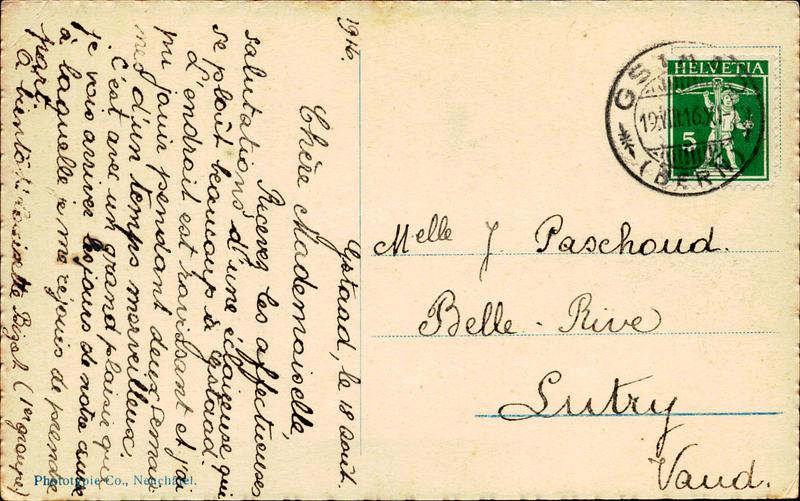 Gstaad, le 18 août.
1916.
Chère Mademoiselle,
Recevez les affectueuses
salutations d'une éclaireuse qui
se plaît beaucoup à Gstaad.
L'endroit est ravissant et j'ai
pu jouir pendant deux semai-
nes d'un temps merveilleux.
C'est avec un grand plaisir que
je vois arriver les jours de notre
à laquelle je me réjouis de prendre
part.
A bientôt! (1er groupe)
Melle J Paschoud.
Belle-Rive
Lutry
Vaud.
HELVETIA
5
GSTAAD
19.VIII.16.X
(BERN)
Phototypie Co., Neuchâtel.